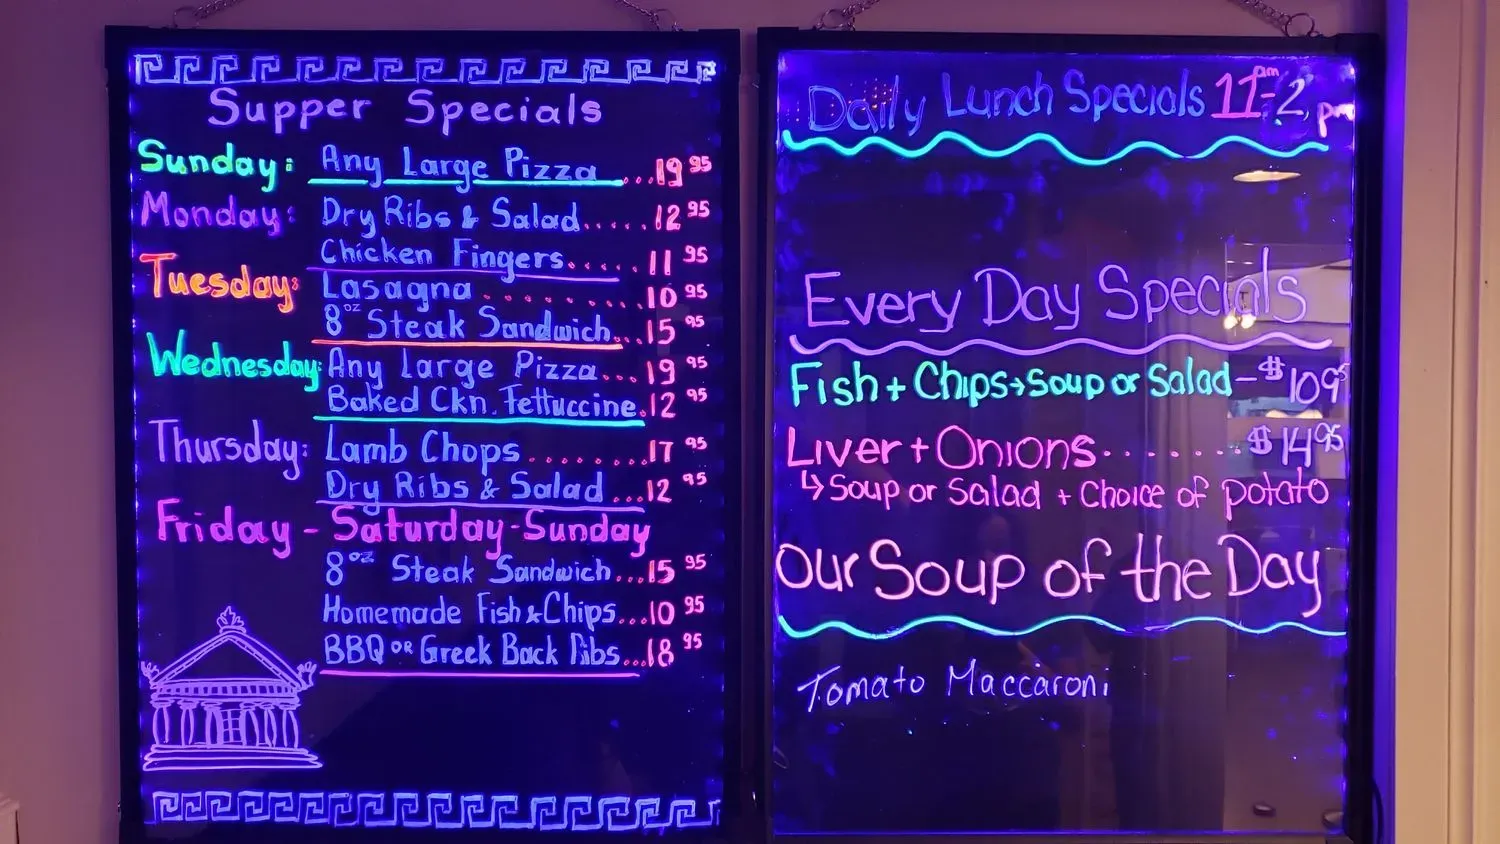 Supper Specials
Sunday: Any Large Pizza ...19 95
Monday: Dry Ribs & Salad.....12 95
Chicken Fingers.....11 95
Tuesday: Lasagna..........10 95
8oz Steak Sandwich...15 95
Wednesday: Any Large Pizza...19 95
Baked Ckn. Fettuccine.12 95
Thursday: Lamb Chops........17 95
Dry Ribs & Salad...12 95
Friday - Saturday - Sunday
8oz Steak Sandwich...15 95
Homemade Fish & Chips...10 95
BBQ OR Greek Back Ribs...18 95
Daily Lunch Specials 11am-2pm
Every Day Specials
Fish + Chips→Soup or Salad-$10 95
Liver + Onions........$14 95
↳Soup or Salad + Choice of potato
Our Soup of the Day
Tomato Maccaroni